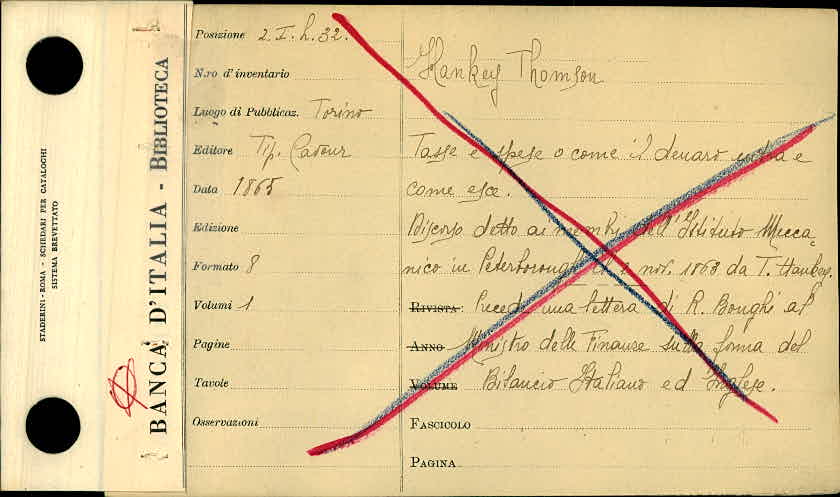 STADERINI - ROMA - SCHEDARI PER CATALOGHI
SISTEMA BREVETTATO
BANCA D'ITALIA - BIBLIOTECA
Posizione 2. I. h. 32.
N.ro d'inventario
Luogo di Pubblicaz. Torino
Editore Tip. Cavour
Data 1865
Edizione
Formato 8
Volumi 1
Pagine
Tavole
Osservazioni
Hankey Thomson
Tasse e spese o come il denaro entra e
come esce.
Discorso detto ai membri dell'Istituto Mecca
nico in Peterborough nov. 1863 da T. Hankey.
RIVISTA: Precede una lettera di R. Bonghi al
ANNO Ministro delle Finanze sulla forma del
VOLUME Bilancio Italiano ed Inglese.
FASCICOLO
PAGINA